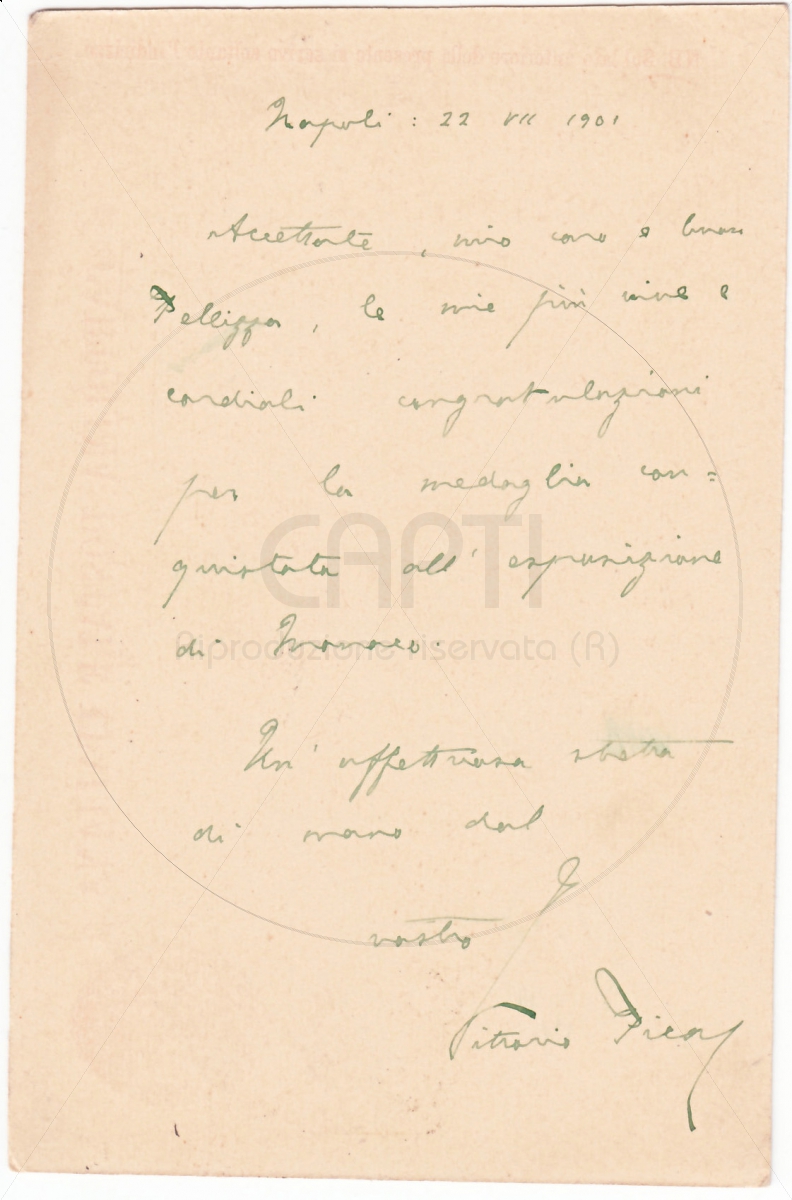 Napoli: 22 VII 1901
Accettate, mio caro e buon
Pellizza, le mie più vive e
cordiali congratulazioni
per la medaglia con=
quistata all'esposizione
di Monaco.
Un'affettuosa stretta
di mano dal
vostro
Vittorio Pica
CAPTI
Riproduzione riservata (R)